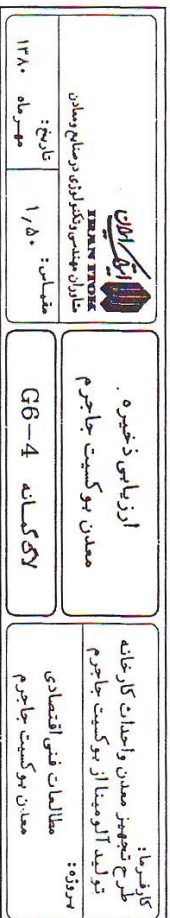 کارفرما:
طرح تجهیز معدن و احداث کارخانه
تولید آلومینا از بوکسیت جاجرم
پروژه:
مطالعات فنی اقتصادی
معدن بوکسیت جاجرم
ارزیابی ذخیره
معدن بوکسیت جاجرم
لاگ گمانه G6-4
ایتوک ایران
IRAN ITOK
مشاوران مهندسی و تکنولوژی در صنایع و معادن
مقیاس: ۱/۵۰
تاریخ:
مهرماه ۱۳۸۰